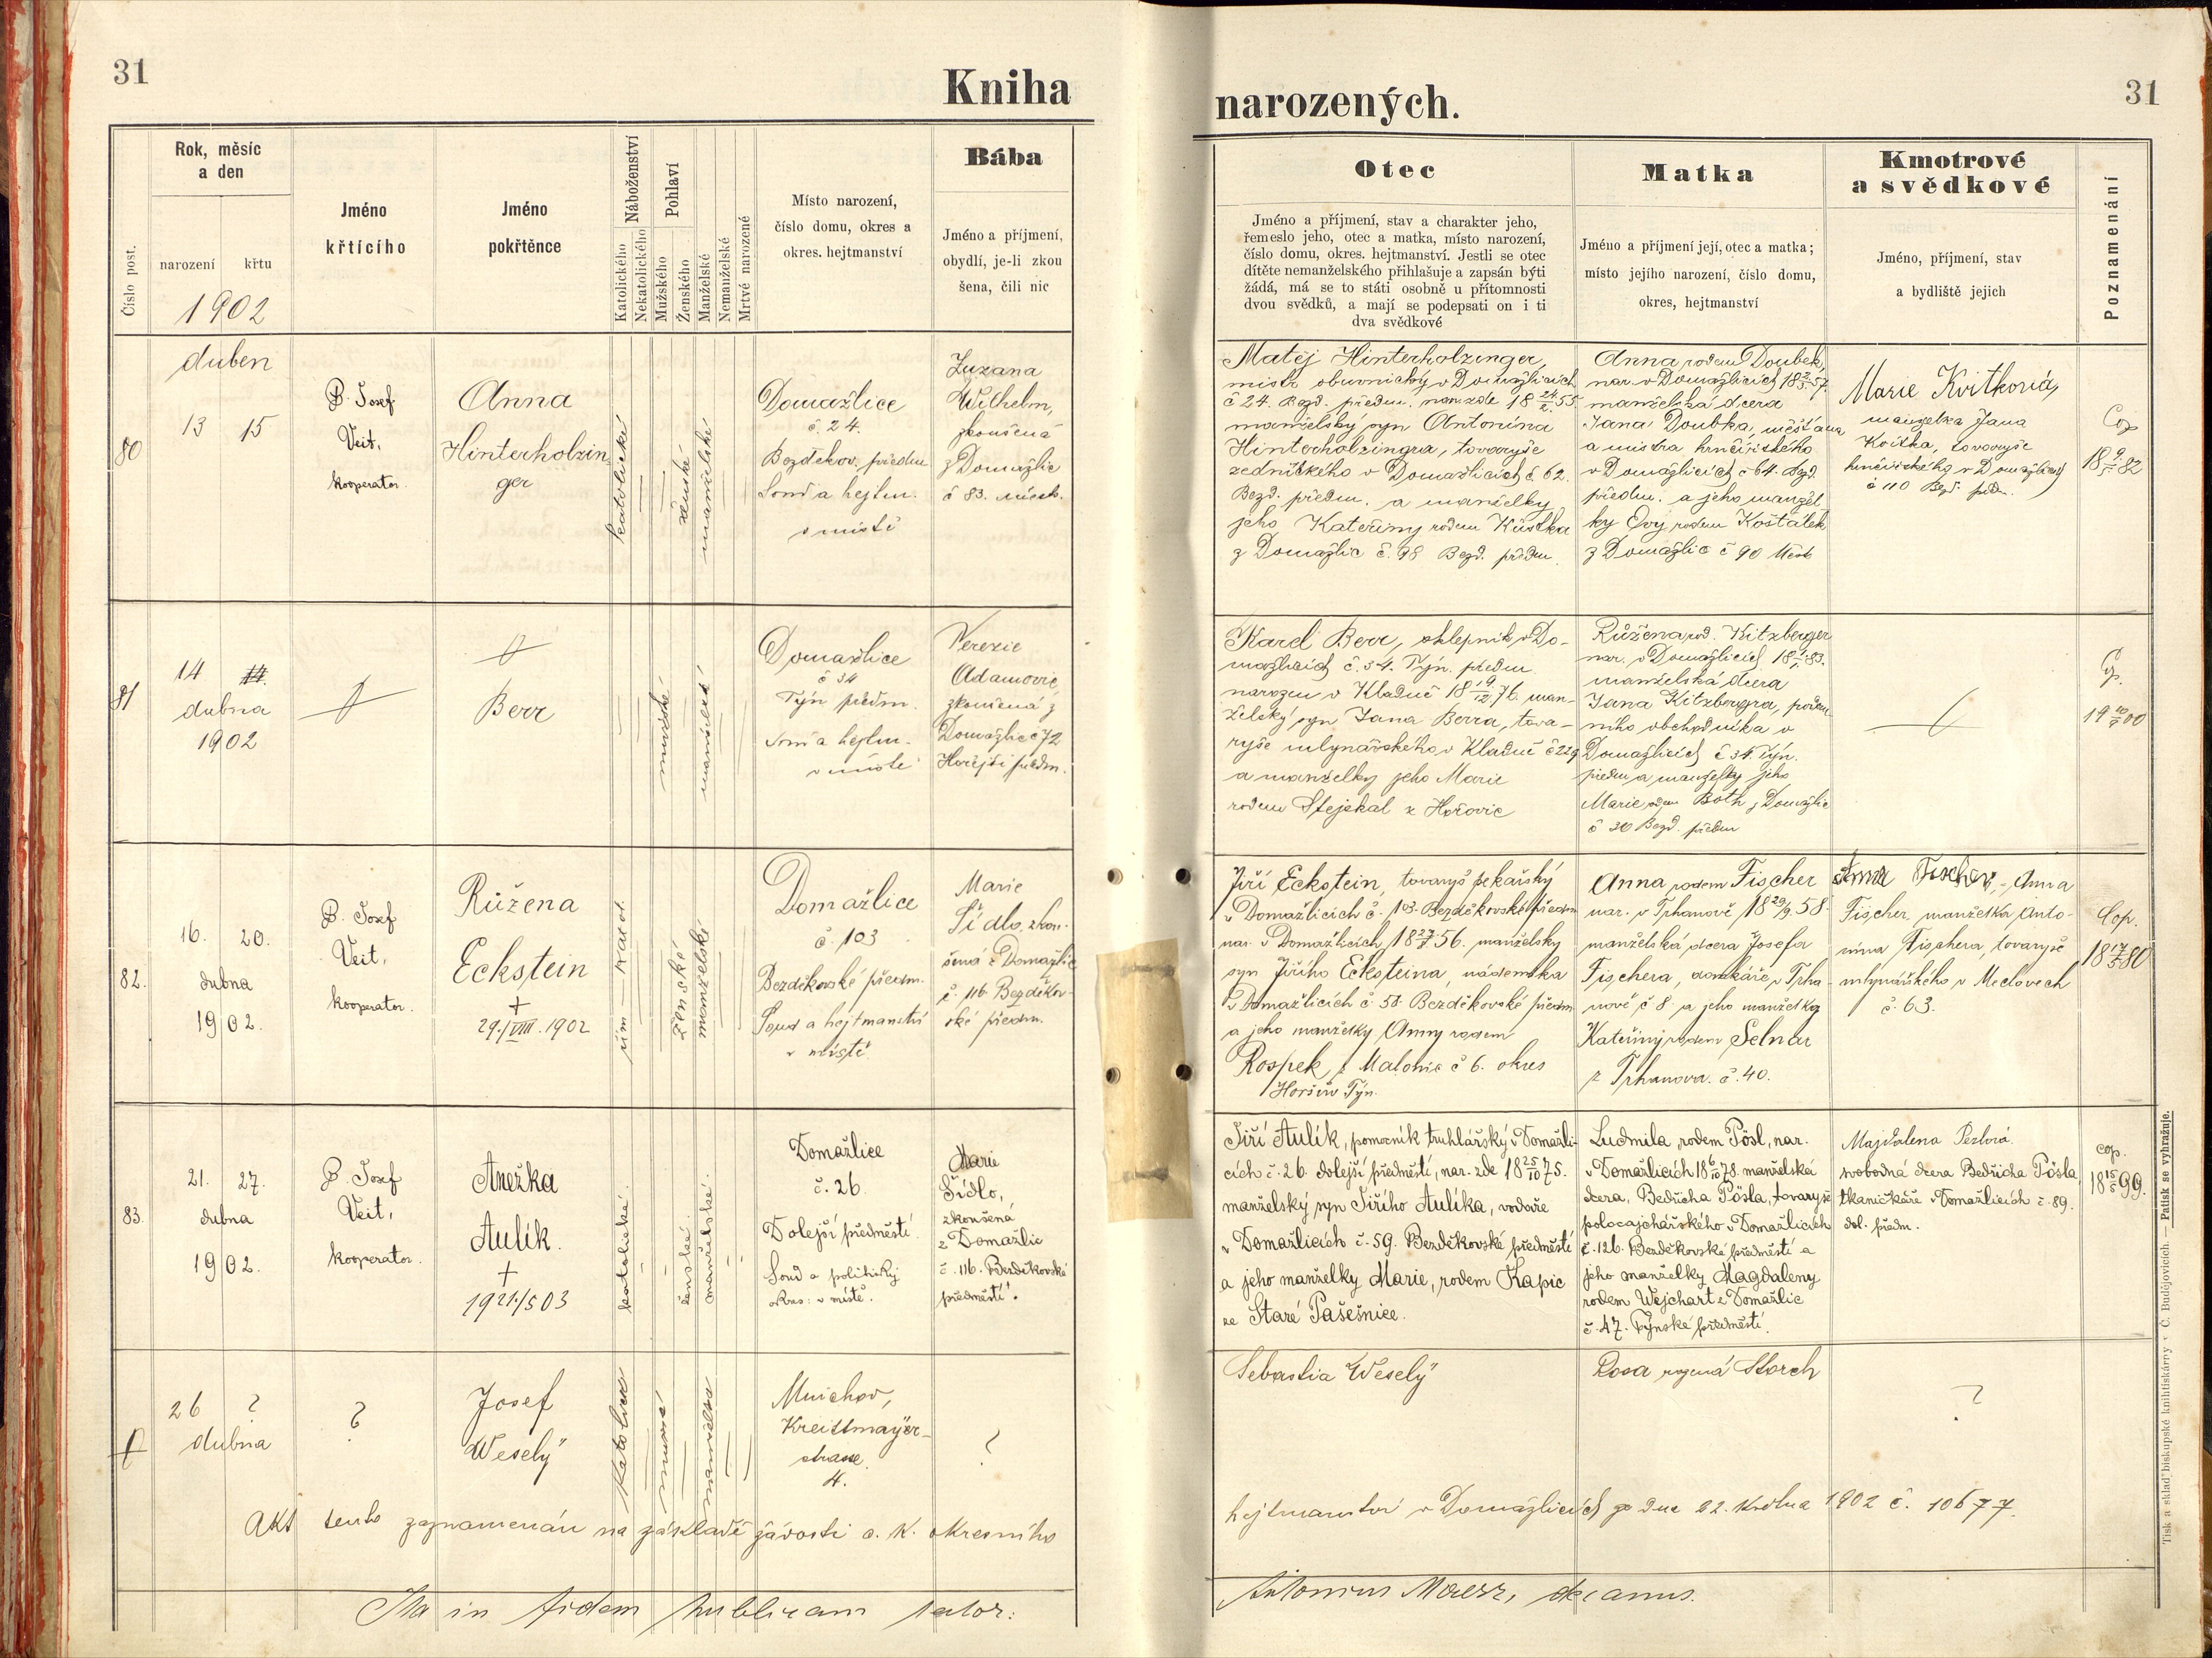 31
Kniha
narozených.
31
Číslo post.
Rok, měsíc
a den
narození
křtu
1902
Jméno
křtícího
Jméno
pokřtěnce
Náboženství
Katolického
Nekatolického
Pohlaví
Mužského
Ženského
Manželské
Nemanželské
Mrtvé narozené
Místo narození,
číslo domu, okres a
okres. hejtmanství
Bába
Jméno a příjmení,
obydlí, je-li zkou
šena, čili nic
Otec
Jméno a příjmení, stav a charakter jeho,
řemeslo jeho, otec a matka, místo narození,
číslo domu, okres. hejtmanství. Jestli se otec
dítěte nemanželského přihlašuje a zapsán býti
žádá, má se to státi osobně u přítomnosti
dvou svědků, a mají se podepsati on i ti
dva svědkové
Matka
Jméno a příjmení její, otec a matka;
místo jejího narození, číslo domu,
okres, hejtmanství
Kmotrové
a svědkové
Jméno, příjmení, stav
a bydliště jejich
Poznamenání
80
duben
13 15
P. Josef
Veit,
kooperator.
Anna
Hinterholzin
ger
katolické
ženské
manželské
Domažlice
č. 24.
Bezděkov. předm
Soud a hejtm.
v místě
Zuzana
Wilhelm,
zkoušená
z Domažlic
č 83. městs.
Matěj Hinterholzinger,
mistr obuvnický v Domažlicích
č 24. Bezd. předm. nar. zde 18 24/2 55
manželský syn Antonína
Hinterholzingra, tovaryše
zednického v Domažlicích č. 62.
Bezd. předm. a manželky
jeho Kateřiny rodem
z Domažlic č. 98 Bezd. předm.
Anna rodem Doubek,
nar. v Domažlicích 57.
manželská dcera
Jana Doubka, měšťana
a mistra hrnčířského
v Domažlicích č 64. Bezd.
předm. a jeho manžel
ky Evy rodem Košťálek
z Domažlic č 90 Městs
Marie Kvitková,
manželka Jana
Kvitka, tovaryše
hrnčířského v Domažlicích
č 110 Bezd. předm.
Cop
18 9/5 82
81
14
dubna
1902
Berr
mužské
manželské
Domažlice
č 34
Týn předm.
Soud a hejtm.
v místě
Terezie
Adamovic,
zkoušená z
Domažlic č 72
Hořejší předm.
Karel Berr, sklepník v Do-
mažlicích č. 34. Týn. předm
narozen v Kladně 18 19/12 76. man-
želský syn Jana Berra, tova-
ryše mlynářského v Kladně č 229
a manželky jeho Marie
rodem Stejskal z Hořovic
Růžena rod. Kitzberger
nar. v Domažlicích 83.
manželská dcera
Jana Kitzbergra, podom
ního obchodníka v
Domažlicích č 34. Týn.
předm a manželky jeho
Marie rodem Both z Domažlic
č 30 Bezd. předm
Cop.
1900
82.
16. 20.
dubna
1902.
P. Josef
Veit,
kooperator.
Růžena
Eckstein
+
29./VIII. 1902
řím katol.
ženské
manželské
Domažlice
č. 103
Bezděkovské předm.
Soud a hejtmanství
v místě.
Marie
Šídlo, zkou-
šená z Domažlic
č. 116 Bezděkov-
ské předm.
Jiří Eckstein, tovaryš pekařský
v Domažlicích č. 103. Bezděkovské předm
nar. v Domažlicích, 18 27/7 56. manželský
syn Jiřího Ecksteina, nádeníka
v Domažlicích č 58. Bezděkovské předm.
a jeho manželky Anny rodem
Rospek z Malonic č 6. okres
Horšův Týn.
Anna rodem Fischer
nar. v Trhanově 18 29/9 58.
manželská dcera Josefa
Fischera, domkáře v Trha-
nově č 8 a jeho manželky
Kateřiny rodem Selnar
z Trhanova. č. 40.
Anna Fischer, - Anna
Fischer, manželka Anto-
nína Fischera, tovaryše
mlynářského v Meclovech
č. 63.
Cop.
18 17/5 80
83.
21. 27.
dubna
1902.
P. Josef
Veit,
kooperator.
Anežka
Aulík.
+
19 21./5 03
katolické.
ženské.
manželské.
Domažlice
č. 26.
Dolejší předměstí.
Soud a politický
okres: v místě.
Marie
Šídlo,
zkoušená
z Domažlic
č. 116. Bezděkovské
předměstí.
Jiří Aulík, pomocník truhlářský v Domažli-
cích č. 26 dolejší předměstí, nar. zde 18 25/10 75.
manželský syn Jiřího Aulíka, vodaře
v Domažlicích č. 59. Bezděkovské předměstí
a jeho manželky Marie, rodem Kapic
ze Staré Pašešnice.
Ludmila, rodem Pösl, nar.
v Domažlicích 18 6/10 78. manželská
dcera, Bedřicha Pösla, tovaryše
polocajchářského v Domažlicích
č. 126. Bezděkovské předměstí a
jeho manželky Magdaleny
rodem Wejchart z Domažlic
č. 47. Týnské předměstí.
Majdalena Pezlová.
svobodná dcera Bedřicha Pösla,
tkaničkáře v Domažlicích č. 89.
dol. předm.
cop.
18 15/5 99.
26 ?
dubna
?
Josef
Weselÿ
katolické
mužské
manželské
Mnichov,
Kreittmaÿer-
strasse
4.
?
Sebastia Weselÿ
Rosa rozená Storch
?
Akt tento zaznamenán na základě žádosti c. k. okresního
hejtmanství v Domažlicích ze dne 22. května 1902 č. 10677.
Ita in fidem publicam testor:
Antonius Maersz, decanus.
Tisk a sklad biskupské knihtiskárny v Č. Budějovicích. — Patisk se vyhražuje.